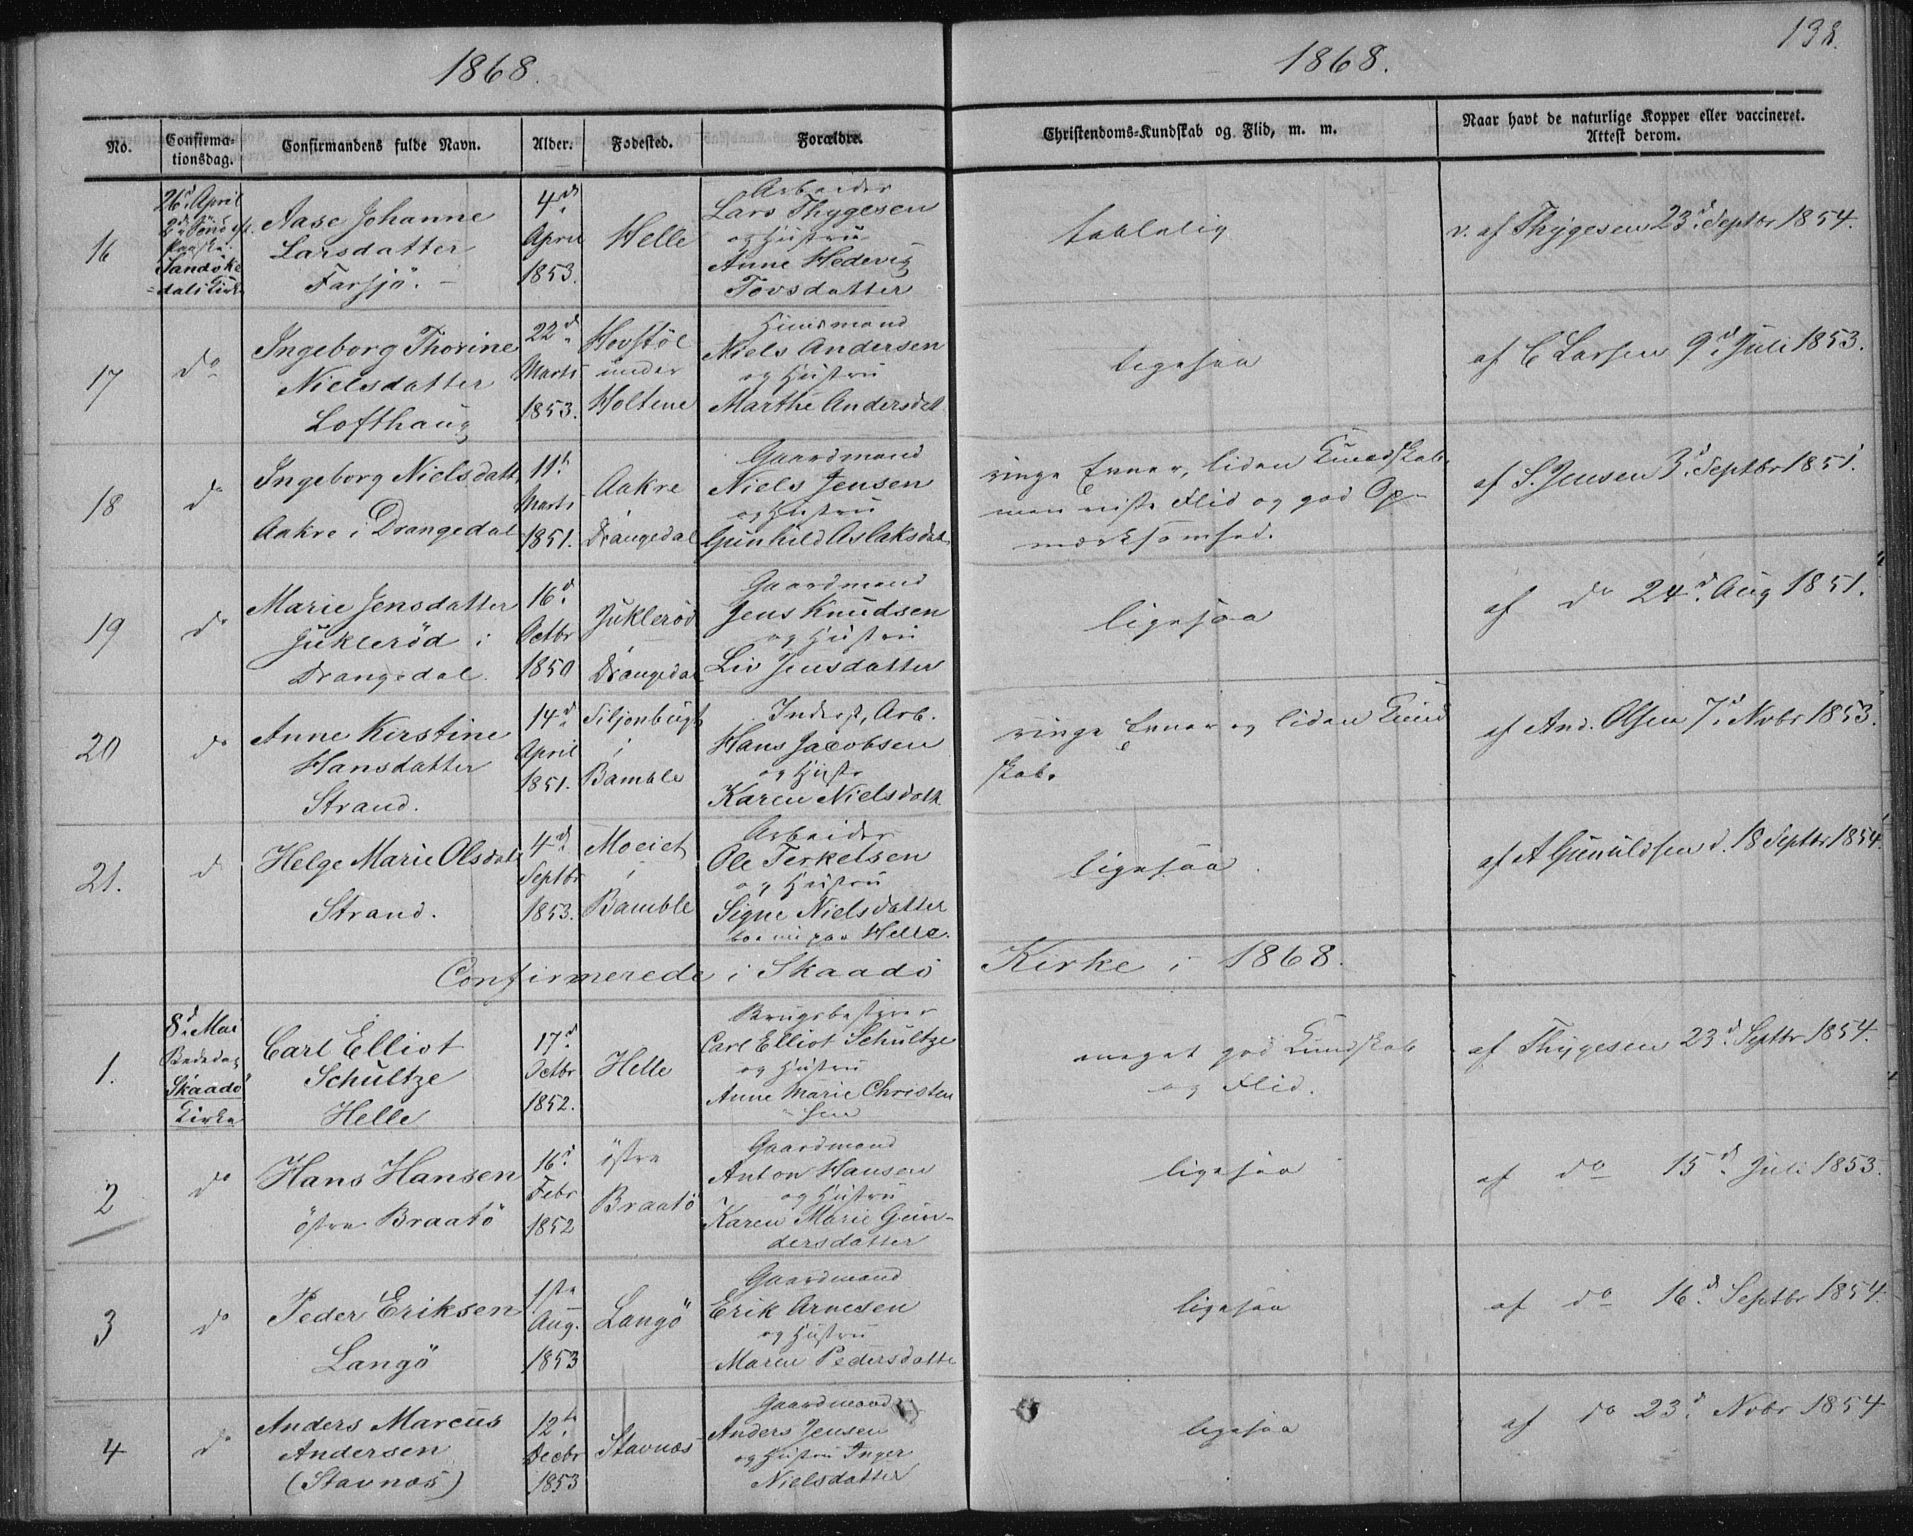 1868.
1868.
138.
No.
Confirma-
tionsdag.
Confirmandens fulde Navn.
Alder.
Fødested.
Forældre.
Christendoms-Kundskab og Flid, m. m.
Naar havt de naturlige Kopper eller vaccineret.
Attest derom.
16
26d April
Sandöke
dals Kirke
Aase Johanne
Larsdatter
Farsjö. -
4de
April
1853.
Helle
Arbeider
Lars Thygesen
og Hustru
Anne Hedevig
Tovsdatter
tabelelig
v. af Thygesen 23d Septbr 1854.
17
do
Ingeborg Thorine
Nielsdatter
Lofthaug
22d
Marts
1853.
Hovstöl
under
Holtene
Huusmand
Niels Andersen
og Hustru
Marthe Andersdtt
ligesaa
af C Larsen 9d Juli 1853.
18
do
Ingeborg Nielsdatt
Aakre i Drangedal
11t
Marts
1851.
Aakre
Drangedal
Gaardmand
Niels Jensen
og Hustru
Gunhild Aslaksdat
ringe Evner, liden Kundskab,
men viste Flid og god Op-
mærksomhed.
af S. Jensen 3d Septbr 1851.
19
do
Marie Jensdatter
Juklerød i
Drangedal.
16d
Octbr
1850
Juklerød
i
Drangedal
Gaardmand
Jens Knudsen
og Hustru
Liv Jensdatter
ligesaa
af do 24d Aug 1851.
20
do
Anne Kirstine
Hansdatter
Strand.
14d
April
1851.
Siljonbugt
i
Bamble
Inderst, Arb.
Hans Jacobsen
og Hustr
Karen Nielsdatt
ringe Evner og liden Kund
skab.
af And. Olsen 7d Novbr 1853.
21.
d
Helge Marie Olsdat
Strand.
4de
Septbr
1853.
Moeiet
i
Bamble
Arbeider
Ole Terkelsen
og Hustru
Signe Nielsdatter
boe nu paa Helle.
ligesaa.
af A Gunuldsen d. 18 Septbr 1854.
Confirmerede i Skaadö Kirke i 1868.
1.
8d Mai
Bededag
Skaadö
Kirke
Carl Elliot
Schultze
Helle
17d
Octbr
1852.
Helle
Brugsbestyrer
Carl Elliot Schultze
og Hustru
Anne Marie Christen
-sen
meget god Kundskab
og Flid.
af Thygesen 23d Septbr 1854.
2
do
Hans Hansen
östre Braatö
16d
Febr
1852
östre
Braatö
Gaardmand
Anton Hansen
og Hustru
Karen Marie Gun-
dersdatter
ligesaa
af do 15d Juli 1853.
3
do
Peder Eriksen
Langö
1ste
Aug.
1853
Langö
Gaardmand
Erik Arnesen
og Hustru
Maren Pedersdatte
ligesaa
af do 16d Septbr 1854.
4
do
Anders Marcus
Andersen
(Stavnæs)
12te
Decbr
1853
Stavnæs
Gaardmand
Anders Jensen
og Hustru Inger
Nielsdatter
ligesaa
af do 23d Novbr 1854